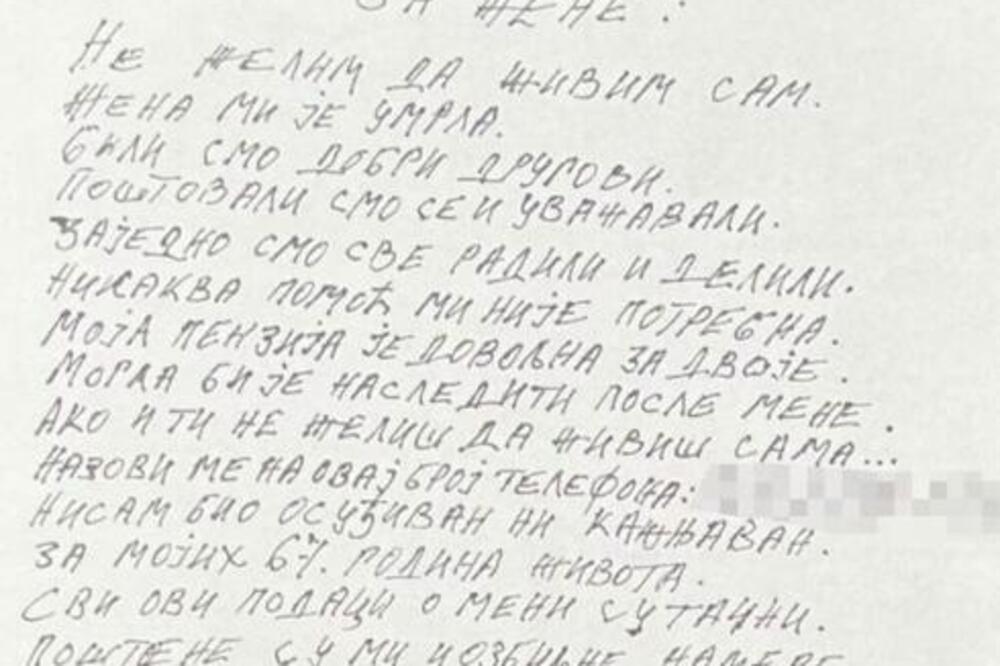 ЗА ЖЕНЕ :
НЕ ЖЕЛИМ ДА ЖИВИМ САМ.
ЖЕНА МИ ЈЕ УМРЛА.
БИЛИ СМО ДОБРИ ДРУГОВИ.
ПОШТОВАЛИ СМО СЕ И УВАЖАВАЛИ.
ЗАЈЕДНО СМО СВЕ РАДИЛИ И ДЕЛИЛИ.
НИКАКВА ПОМОЋ МИ НИЈЕ ПОТРЕБНА.
МОЈА ПЕНЗИЈА ЈЕ ДОВОЉНА ЗА ДВОЈЕ.
МОГЛА БИ ЈЕ НАСЛЕДИТИ ПОСЛЕ МЕНЕ.
АКО И ТИ НЕ ЖЕЛИШ ДА ЖИВИШ САМА...
НАЗОВИ МЕ НА ОВАЈ БРОЈ ТЕЛЕФОНА:
НИСАМ БИО ОСУЂИВАН НИ КАЖЊАВАН.
ЗА МОЈИХ 67. ГОДИНА ЖИВОТА.
СВИ ОВИ ПОДАЦИ О МЕНИ СУ ТАЧНИ.
ПОШТЕНЕ СУ МИ И ОЗБИЉНЕ НАМЕРЕ